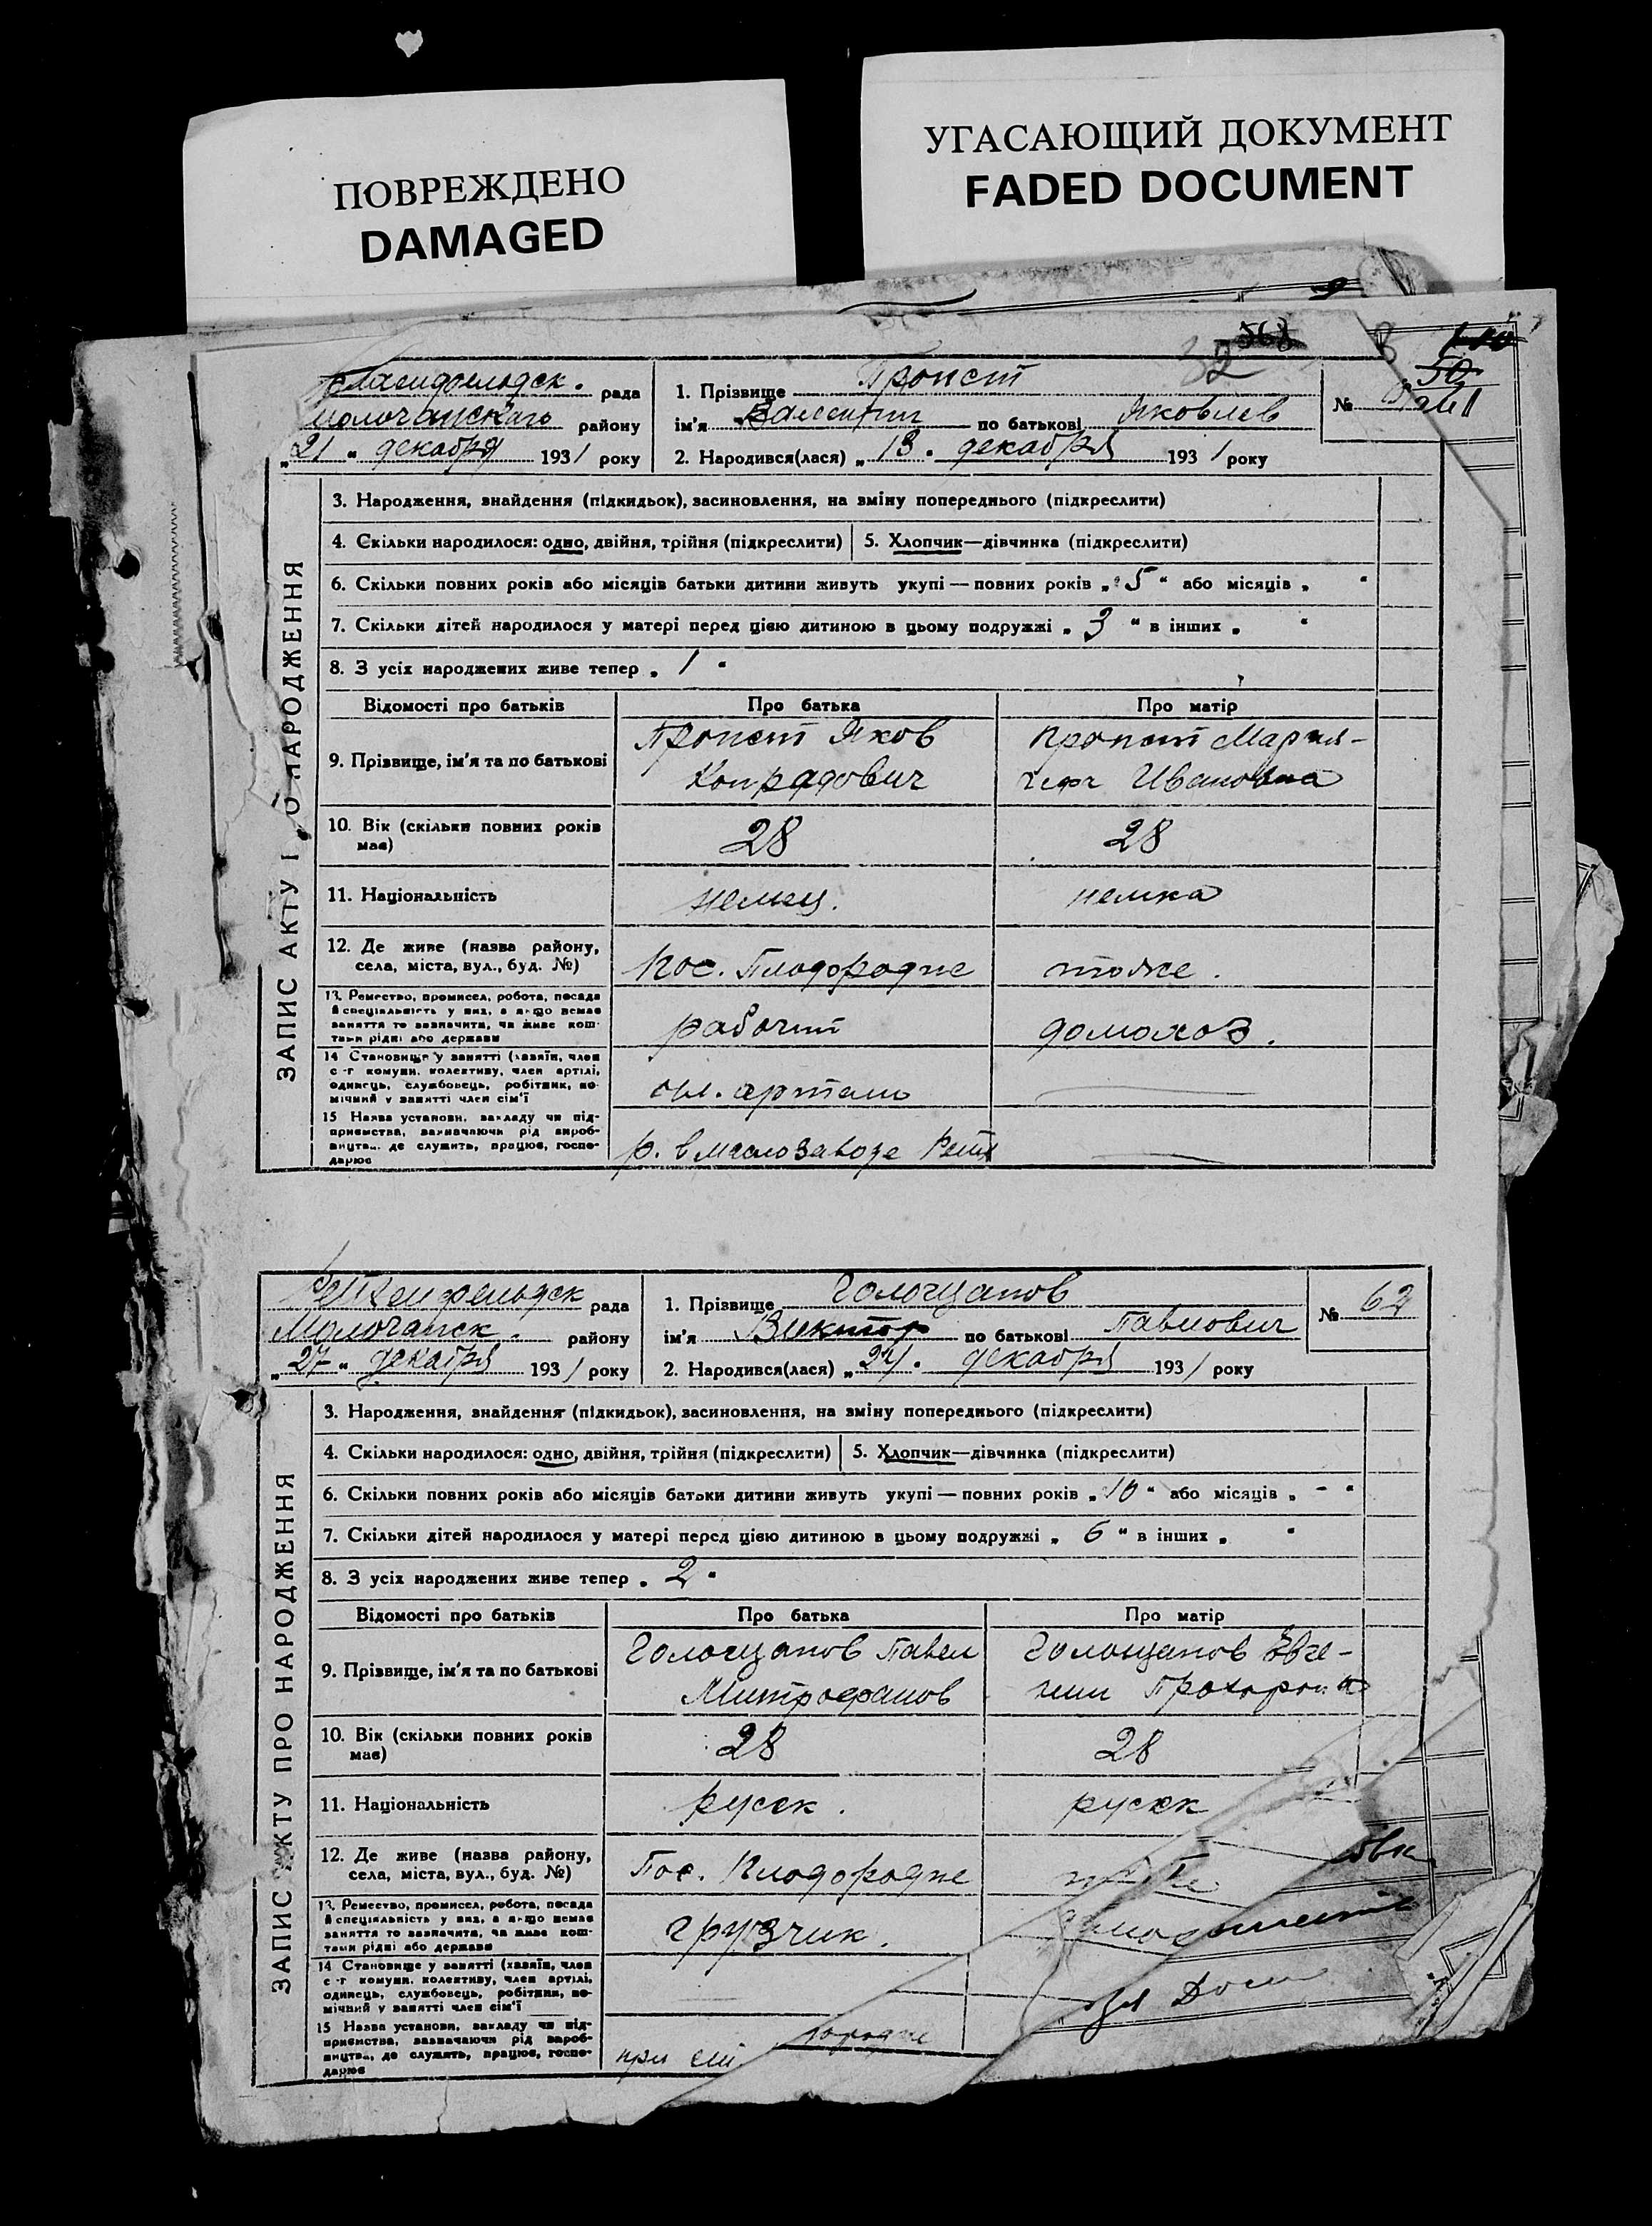 ПОВРЕЖДЕНО
DAMAGED
УГАСАЮЩИЙ ДОКУМЕНТ
FADED DOCUMENT
32 568
рада
Молочанскаго району
„21“ декабря 1931 року
1. Прізвище Пропст
ім'я Валентин по батькові Яковлев
2. Народився(лася) „13“ декабря 1931 року
№
ЗАПИС АКТУ ПРО НАРОДЖЕННЯ
3. Народження, знайдення (підкидьок), засиновлення, на зміну попереднього (підкреслити)
4. Скільки народилося: одно, двійня, трійня (підкреслити)
5. Хлопчик—дівчинка (підкреслити)
6. Скільки повних років або місяців батьки дитини живуть укупі — повних років „5“ або місяців „ “
7. Скільки дітей народилося у матері перед цією дитиною в цьому подружжі „3“ в інших „ “
8. З усіх народжених живе тепер „1“
Відомості про батьків
Про батька
Про матір
9. Прізвище, ім'я та по батькові
Пропст Яков
Конрадович
Пропст Мария-
Ивановна
10. Вік (скільки повних років
має)
28
28
11. Національність
немец.
немка
12. Де живе (назва району,
села, міста, вул., буд. №)
Пос. Плодородне
тоже.
13. Ремество, промисел, робота, посада
й спеціяльність у них, а якщо немає
заняття то зазначити, чи живе кош-
тами рідні або держави
рабочий
домохоз.
14 Становище у занятті (хазяїн, член
с-г комуни, колективу, член артілі,
одинець, службовець, робітник, по-
мічний у занятті член сім'ї
чл. артели
15 Назва установи, закладу чи під-
приємства, зазначаючи рід вироб-
ництва, де служить, працює, госпо-
дарює
р. в маслозаводе
Рейхенфельдск рада
Молочанск. району
„27“ декабря 1931 року
1. Прізвище Голощапов
ім'я Виктор по батькові Павлович
2. Народився(лася) „24“ декабря 1931 року
№ 62
ЗАПИС АКТУ ПРО НАРОДЖЕННЯ
3. Народження, знайдення (підкидьок), засиновлення, на зміну попереднього (підкреслити)
4. Скільки народилося: одно, двійня, трійня (підкреслити)
5. Хлопчик—дівчинка (підкреслити)
6. Скільки повних років або місяців батьки дитини живуть укупі — повних років „10“ або місяців „-“
7. Скільки дітей народилося у матері перед цією дитиною в цьому подружжі „6“ в інших „ “
8. З усіх народжених живе тепер „2“
Відомості про батьків
Про батька
Про матір
9. Прізвище, ім'я та по батькові
Голощапов Павел
Митрофанов
Голощапов Евге-
нии
10. Вік (скільки повних років
має)
28
28
11. Національність
русск.
русск
12. Де живе (назва району,
села, міста, вул., буд. №)
Пос. Плодородне
13. Ремество, промисел, робота, посада
й спеціяльність у них, а якщо немає
заняття то зазначити, чи живе кош-
тами рідні або держави
грузчик.
14 Становище у занятті (хазяїн, член
с-г комуни, колективу, член артілі,
одинець, службовець, робітник, по-
мічний у занятті член сім'ї
15 Назва установи, закладу чи під-
приємства, зазначаючи рід вироб-
ництва, де служить, працює, госпо-
дарює
при